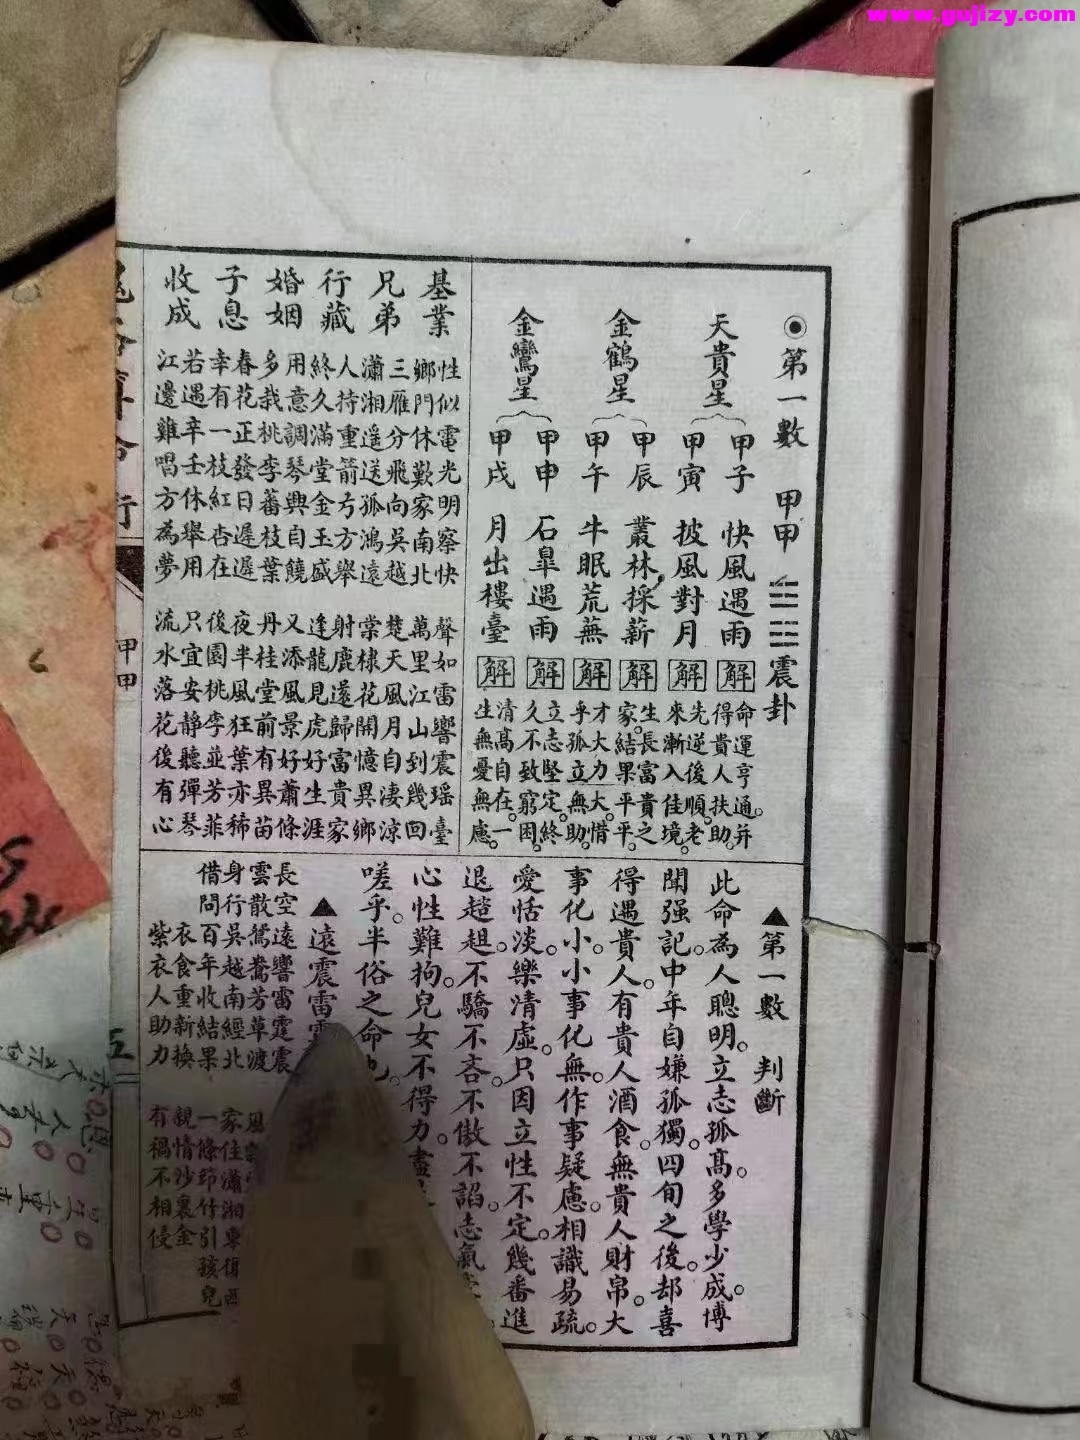 ⦿第一數 甲甲 ䷲ 震卦
天貴星
甲子 快風遇雨 解 命運亨通。并得貴人扶助。
甲寅 披風對月 解 先逆後順。老來漸入佳境。
金鶴星
甲辰 叢林採薪 解 生長富貴之家。結果平平。
甲午 牛眠荒蕪 解 才大力大。惜乎孤立無助。
金鸞星
甲申 石皐遇雨 解 立志堅定。終久不致窮困。
甲戌 月出樓臺 解 清高自在。一生無憂無慮。
基業
性似電光明察快 聲如雷響震瑤臺
鄉門休歎家南北 萬里江山到幾回
兄弟
三雁分飛向吳越 楚天風月自凄涼
瀟湘遥送孤鴻遠 棠棣花開憶異鄉
行藏
人持重箭弓方舉 射鹿遠歸富貴家
終久滿堂金玉盛 逢龍見虎好生涯
婚姻
用意調琴興自饒 又添風景好蕭條
多栽桃李蕃枝葉 丹桂堂前有異苗
子息
春花正發日遲遲 夜半風狂葉亦稀
幸有一枝紅杏在 後園桃李並芳菲
收成
若遇辛壬休舉用 只宜安靜聽彈琴
江邊雞唱方為夢 流水落花後有心
▲第一數 判斷
此命為人聰明。立志孤高。多學少成。博
聞强記。中年自嫌孤獨。四旬之後。却喜
得遇貴人。有貴人酒食。無貴人財帛。大
事化小。小事化無。作事疑慮。相識易疏。
愛恬淡。樂清虛。只因立性不定。幾番進
退趑趄。不驕不吝。不傲不諂。志氣
心性難拘。兒女不得力。盡
嗟乎。半俗之命也。
▲遠震雷
長空遠響雷霆震 風
雲散鴛鴦芳草渡
身行吳越南經北 家住瀟湘東復西
借問百年收結果 一條筇竹引孩兒
衣食重新換 親情沙裏金
紫衣人助力 有禍不相侵
甲甲
五
www.gujizy.com